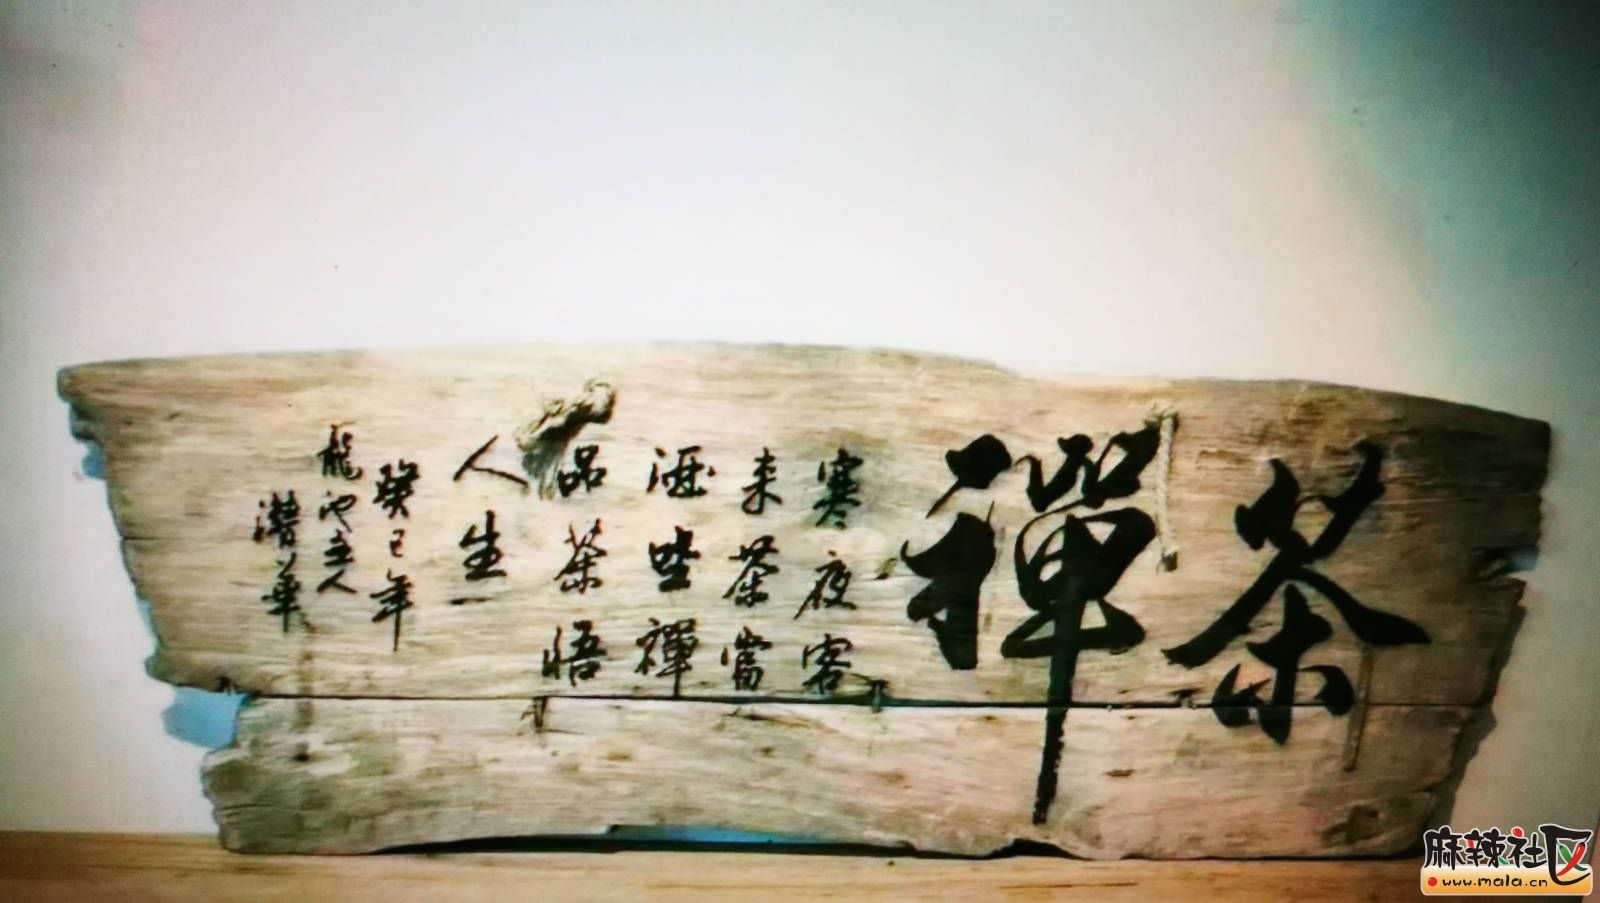 茶
禪
寒夜客
来茶當
酒坐禪
品茶悟
人生
癸巳年
龍池主人
麻辣社区
www.mala.cn